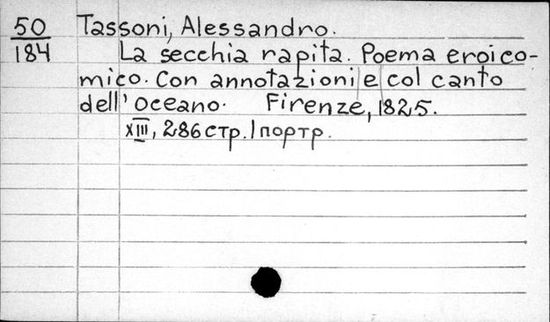 50 Tassoni, Alessandro.
184 La secchia rapita. Poema eroico-
mico. Con annotazioni e col canto
dell' Oceano. Firenze, 1825.
XIII, 286 стр. 1 портр.